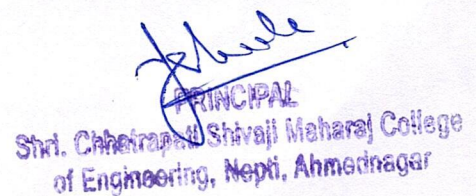 PRINCIPAL
Shri. Chhatrapati Shivaji Maharaj College
of Engineering, Nepti, Ahmednagar